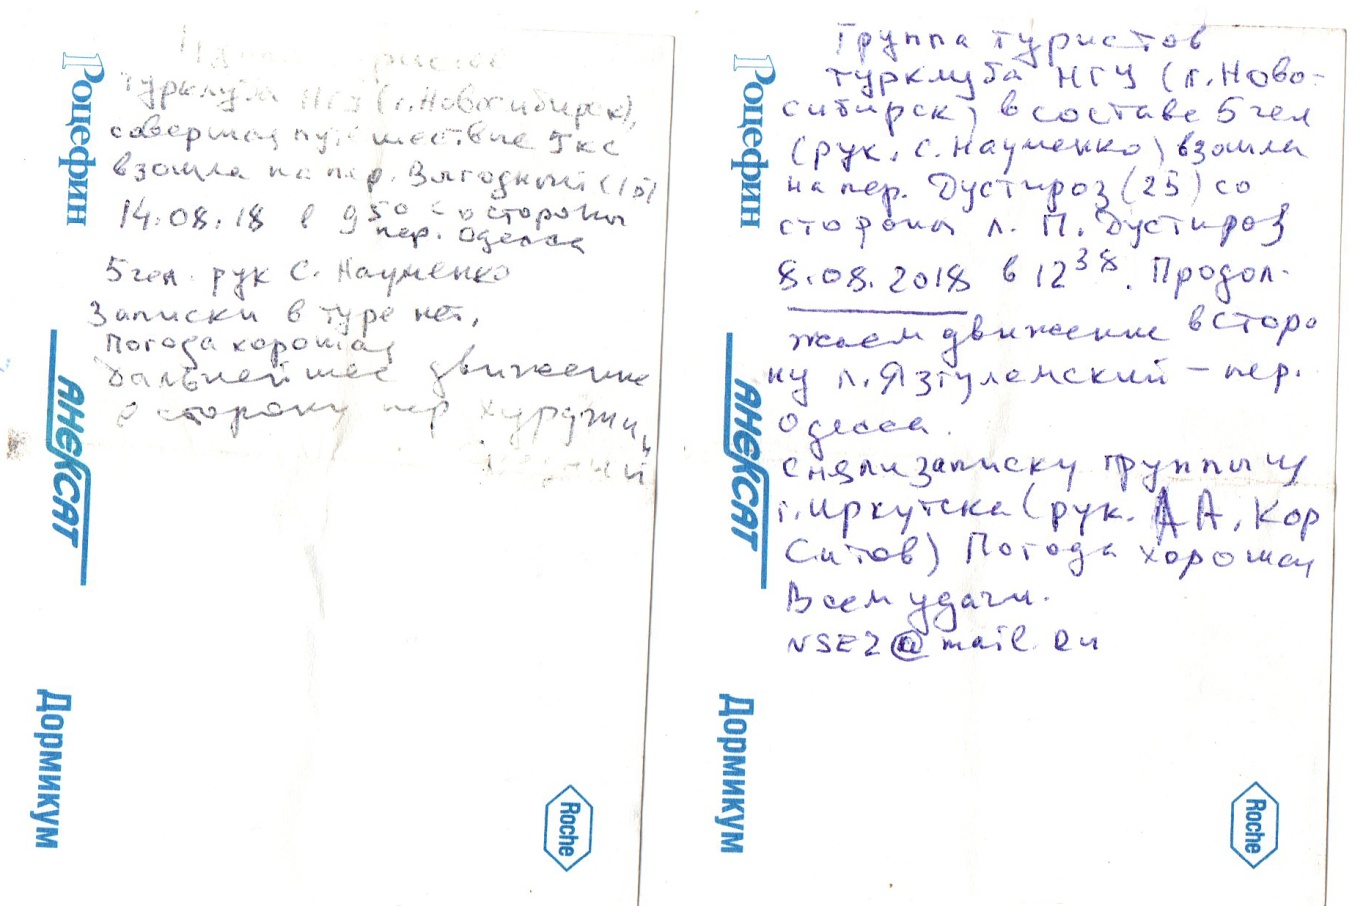 Группа туристов
турклуба НГУ (г. Новосибирск),
совершая путешествие 5кс
взошла на пер. Звёздный (1Б)
14.08.18 в 9 50 со стороны
пер. Одесса
5 чел. рук С. Науменко
Записки в туре нет,
Погода хорошая
Дальнейшее движение
в сторону пер
Роцефин
АНЕКСАТ
Дормикум
Roche
Группа туристов
турклуба НГУ (г. Ново-
сибирск) в составе 5 чел
(рук. С. Науменко) взошла
на пер. Дустироз (2Б) со
стороны л. П. Дустироз
8.08.2018 в 12 38. Продол-
жаем движение в сторо
ну л. Язгулемский – пер.
Одесса.
Сняли записку группы из
г. Иркутска (рук. А А. Кор
Ситов) Погода хорошая
Всем удачи.
NSE2@mail.Ru
Роцефин
АНЕКСАТ
Дормикум
Roche